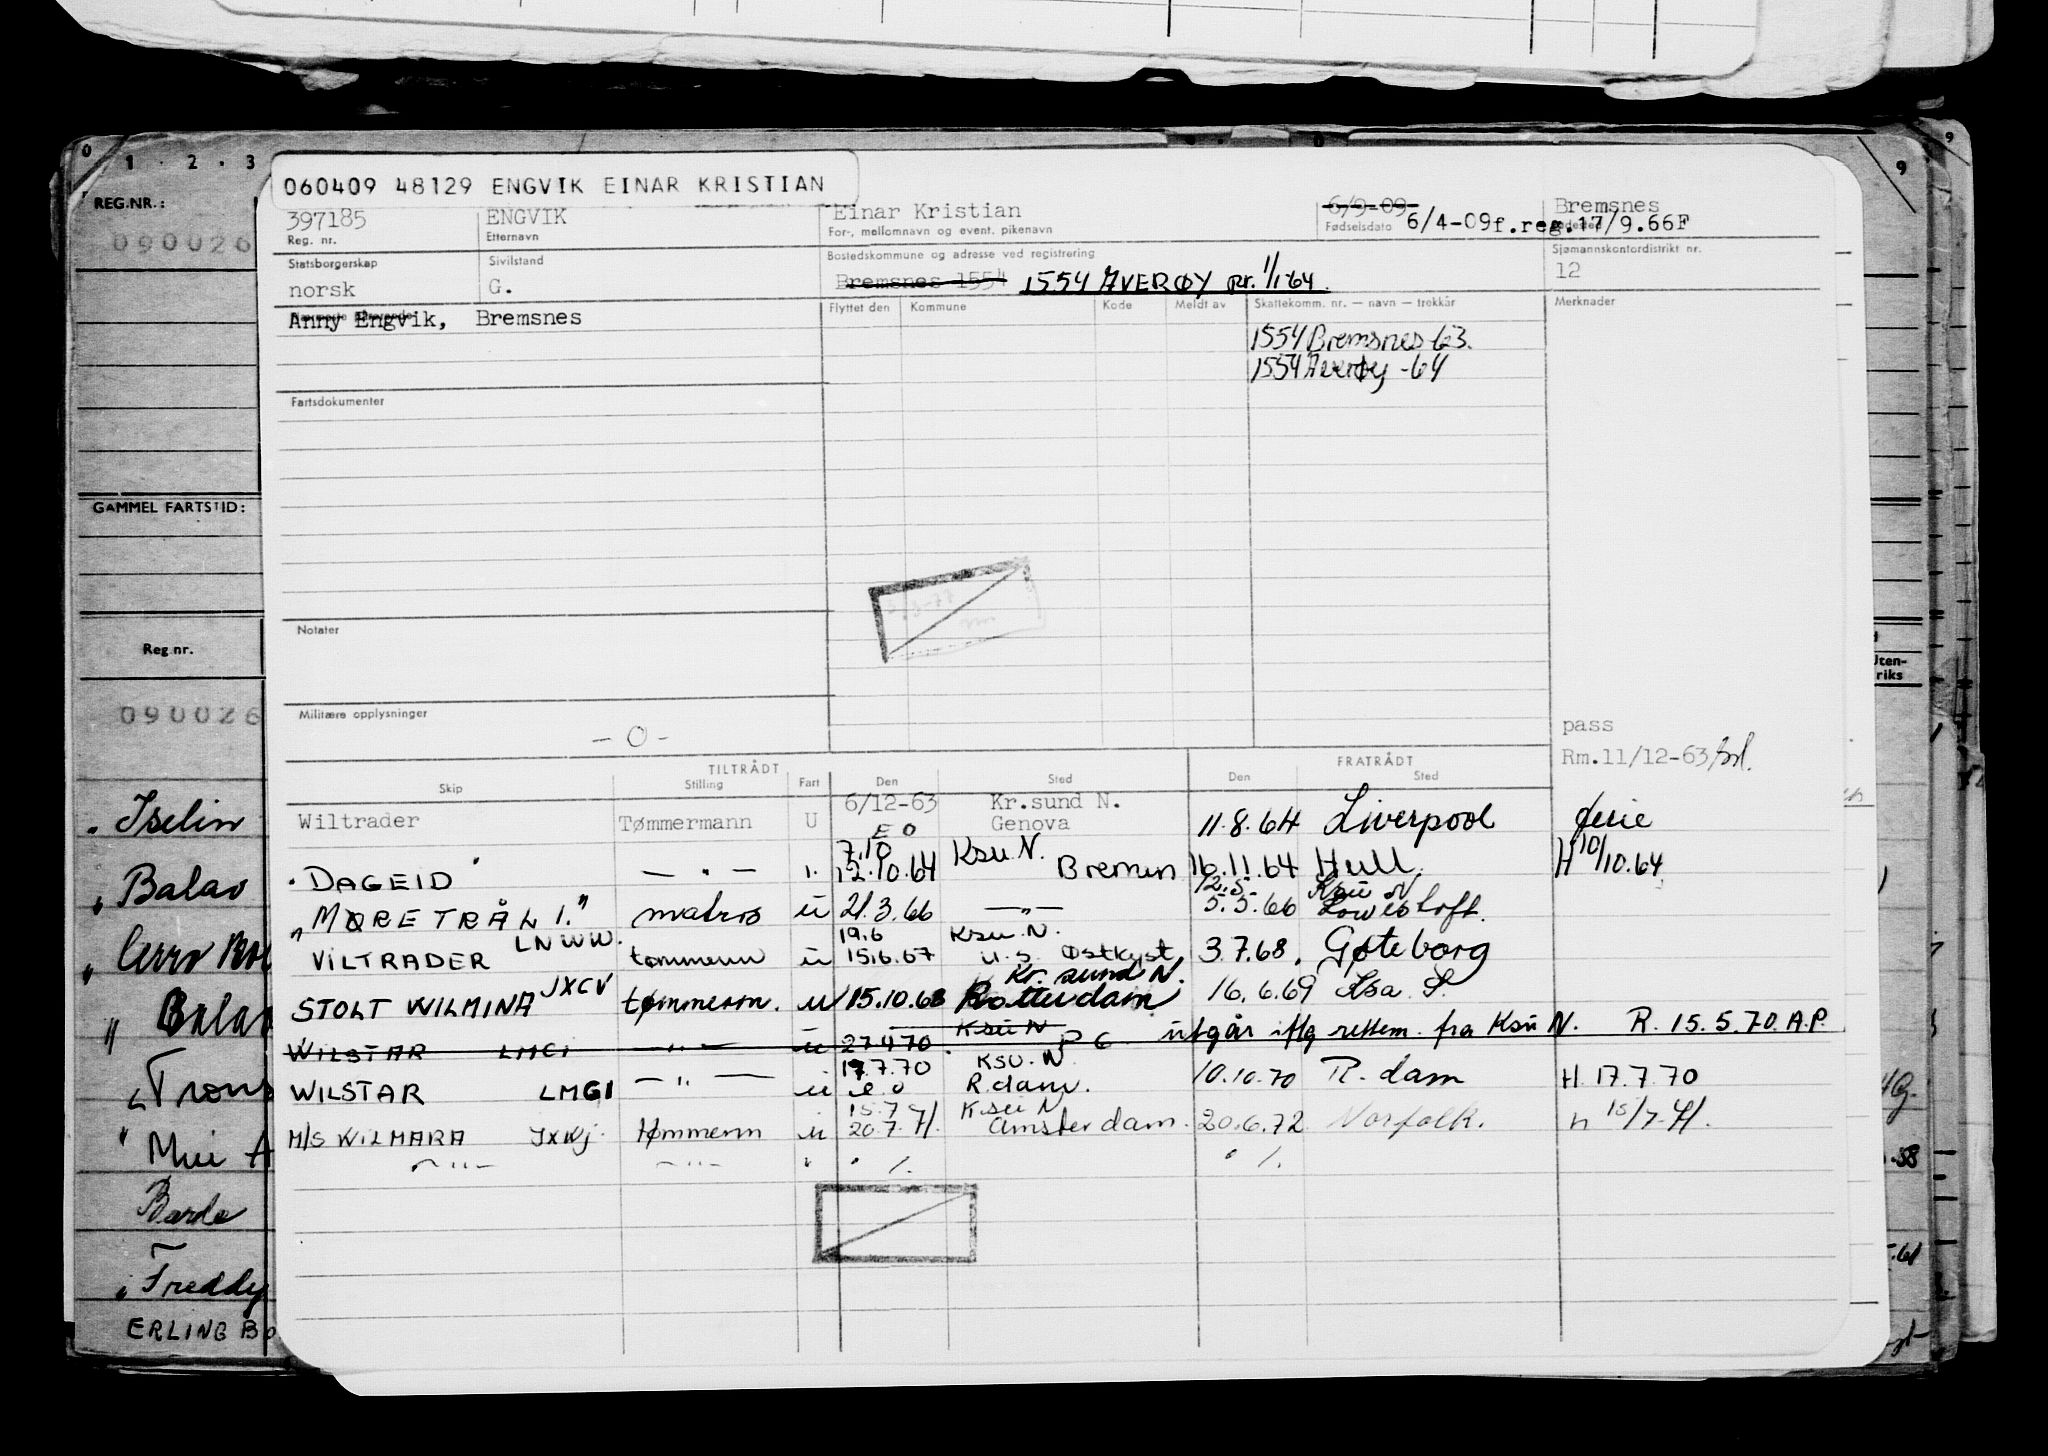 0 1 2 3 9 9
REG.NR.:
090026
GAMMEL FARTSTID:
Reg.nr.
090026
Iselin
Balao
Balao
Mui A
Bardo
Freddy
ERLING BO
Uten-
riks
.58
.61
060409 48129 ENGVIK EINAR KRISTIAN
397185 ENGVIK Einar Kristian 6/9-09- Bremsnes
Reg. nr. Etternavn For-, mellomnavn og event. pikenavn Fødselsdato 6/4-09f.reg.17/9.66F
Statsborgerskap Sivilstand Bostedskommune og adresse ved registrering Sjømannskontordistrikt nr.
norsk G. Bremsnes 1554 1554 AVERØY Rr. 1/1-64. 12
Anny Engvik, Bremsnes Flyttet den Kommune Kode Meldt av Skattekomm. nr. — navn — trekkår Merknader
1554 Bremsnes-63.
1554 Averøy -64
Fartsdokumenter
Notater
Militære opplysninger
- O -
pass
Rm.11/12-63
TILTRÅDT FRATRÅDT
Skip Stilling Fart Den Sted Den Sted
6/12-63 Kr.sund N.
Wiltrader Tømmermann U E O Genova 11.8.64 Liverpool ferie
7.10 Ksu.N.
"DAGEID" — " — 12.10.64 Bremen 16.11.64 Hull. H 10/10.64
12.5. Ksu N
"MØRETRÅL 1." matros ü 21.3.66 —"— 5.5.66 Lowestoft.
19.6 Ksu.N.
VILTRADER LNWW. tømmerm ü 15.6.67 U.S. Østkyst 3.7.68. Gøteborg
Kr.sund N.
STOLT WILMINA JXCV tømmerm. u 15.10.68 Rotterdam 16.6.69 Ksa. S.
Ksu N
WILSTAR LMGI —"— ü 27.4.70 P6 utgår iflg rettem. fra Ksu N. R. 15.5.70. A.P.
17.7.70 KSU.N
WILSTAR LMGI —"— ü e.o R.dam. 10.10.70 R.dam H. 17.7.70
15.7.71 Ksu N
M/S WILMARA JXWJ. tømmerm u 20.7.71. Amsterdam. 20.6.72 Norfolk. h 15/7-71.
—"— —"— " /. " /.